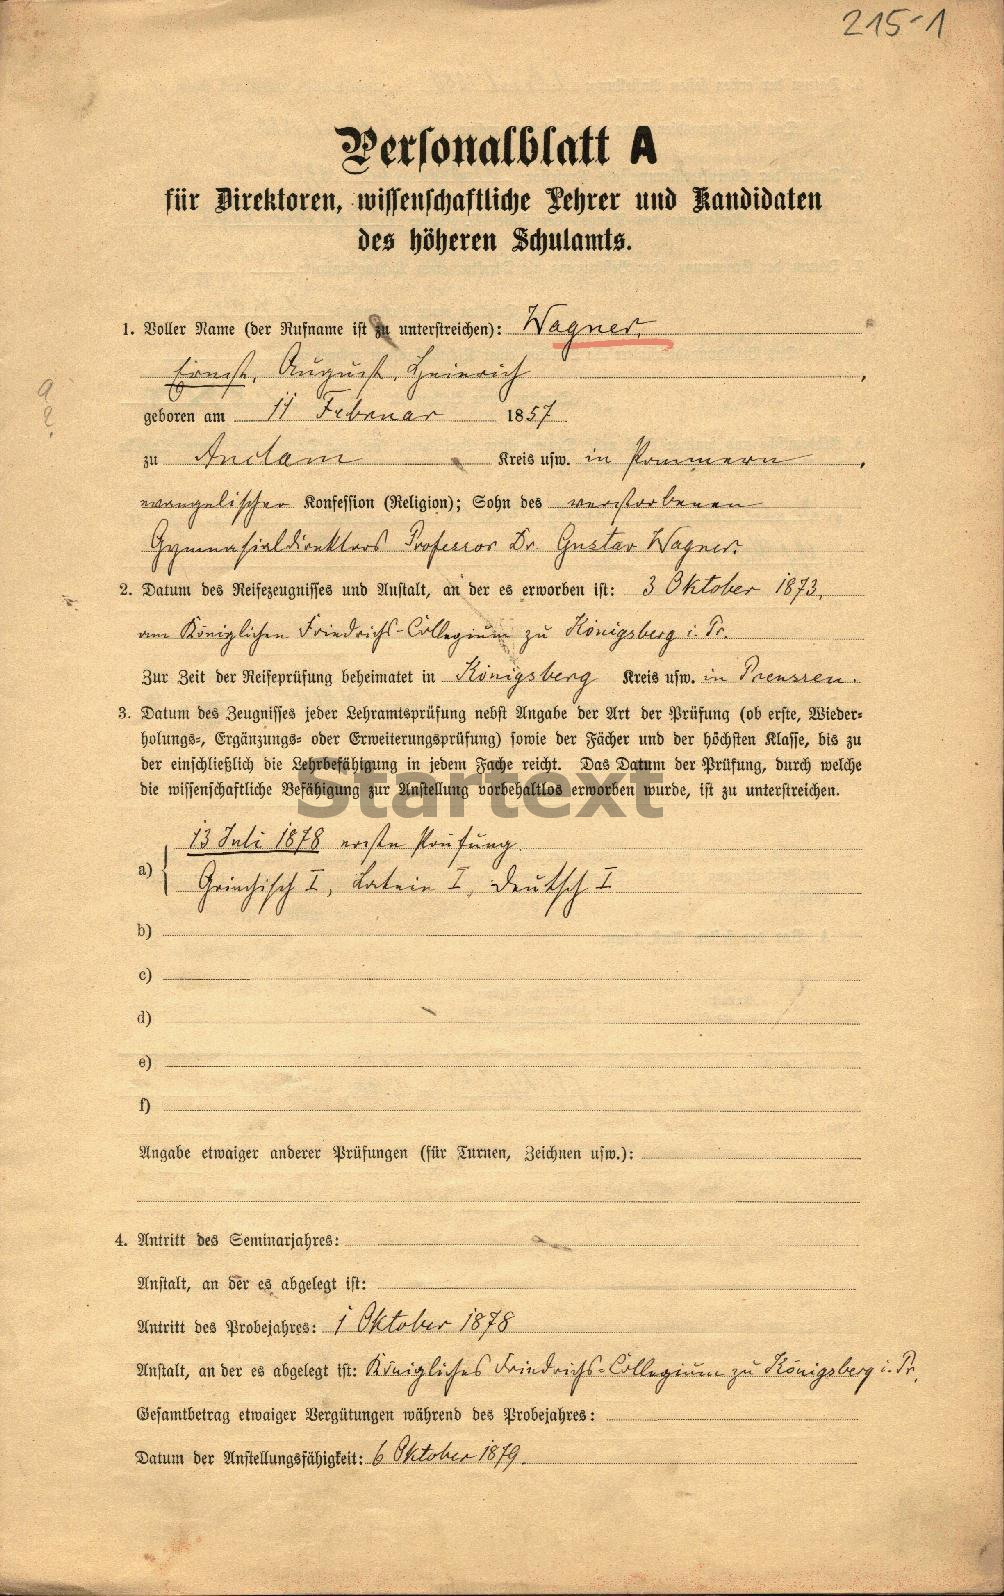 215-1
Personalblatt A
für Direktoren, wissenschaftliche Lehrer und Kandidaten
des höheren Schulamts.
1. Voller Name (der Rufname ist zu unterstreichen): Wagner,
Ernst, August, Heinrich
geboren am 11 Februar 1857
zu Anclam Kreis usw. in Pommern,
evangelischer Konfession (Religion); Sohn des verstorbenen
Gymnasialdirektors Professor Dr Gustav Wagner.
2. Datum des Reifezeugnisses und Anstalt, an der es erworben ist: 3 Oktober 1873,
am Königlichen Friedrichs-Collegium zu Königsberg i. Pr.
Zur Zeit der Reifeprüfung beheimatet in Königsberg Kreis usw. in Preussen.
3. Datum des Zeugnisses jeder Lehramtsprüfung nebst Angabe der Art der Prüfung (ob erste, Wieder-
holungs-, Ergänzungs- oder Erweiterungsprüfung) sowie der Fächer und der höchsten Klasse, bis zu
der einschließlich die Lehrbefähigung in jedem Fache reicht. Das Datum der Prüfung, durch welche
die wissenschaftliche Befähigung zur Anstellung vorbehaltlos erworben wurde, ist zu unterstreichen.
Startext
13 Juli 1878 erste Prüfung.
a) Griechisch I, Latein I, Deutsch I
b)
c)
d)
e)
f)
Angabe etwaiger anderer Prüfungen (für Turnen, Zeichnen usw.):
4. Antritt des Seminarjahres:
Anstalt, an der es abgelegt ist:
Antritt des Probejahres: 1 Oktober 1878
Anstalt, an der es abgelegt ist: Königliches Friedrichs-Collegium zu Königsberg i. Pr.
Gesamtbetrag etwaiger Vergütungen während des Probejahres:
Datum der Anstellungsfähigkeit: 6 Oktober 1879.